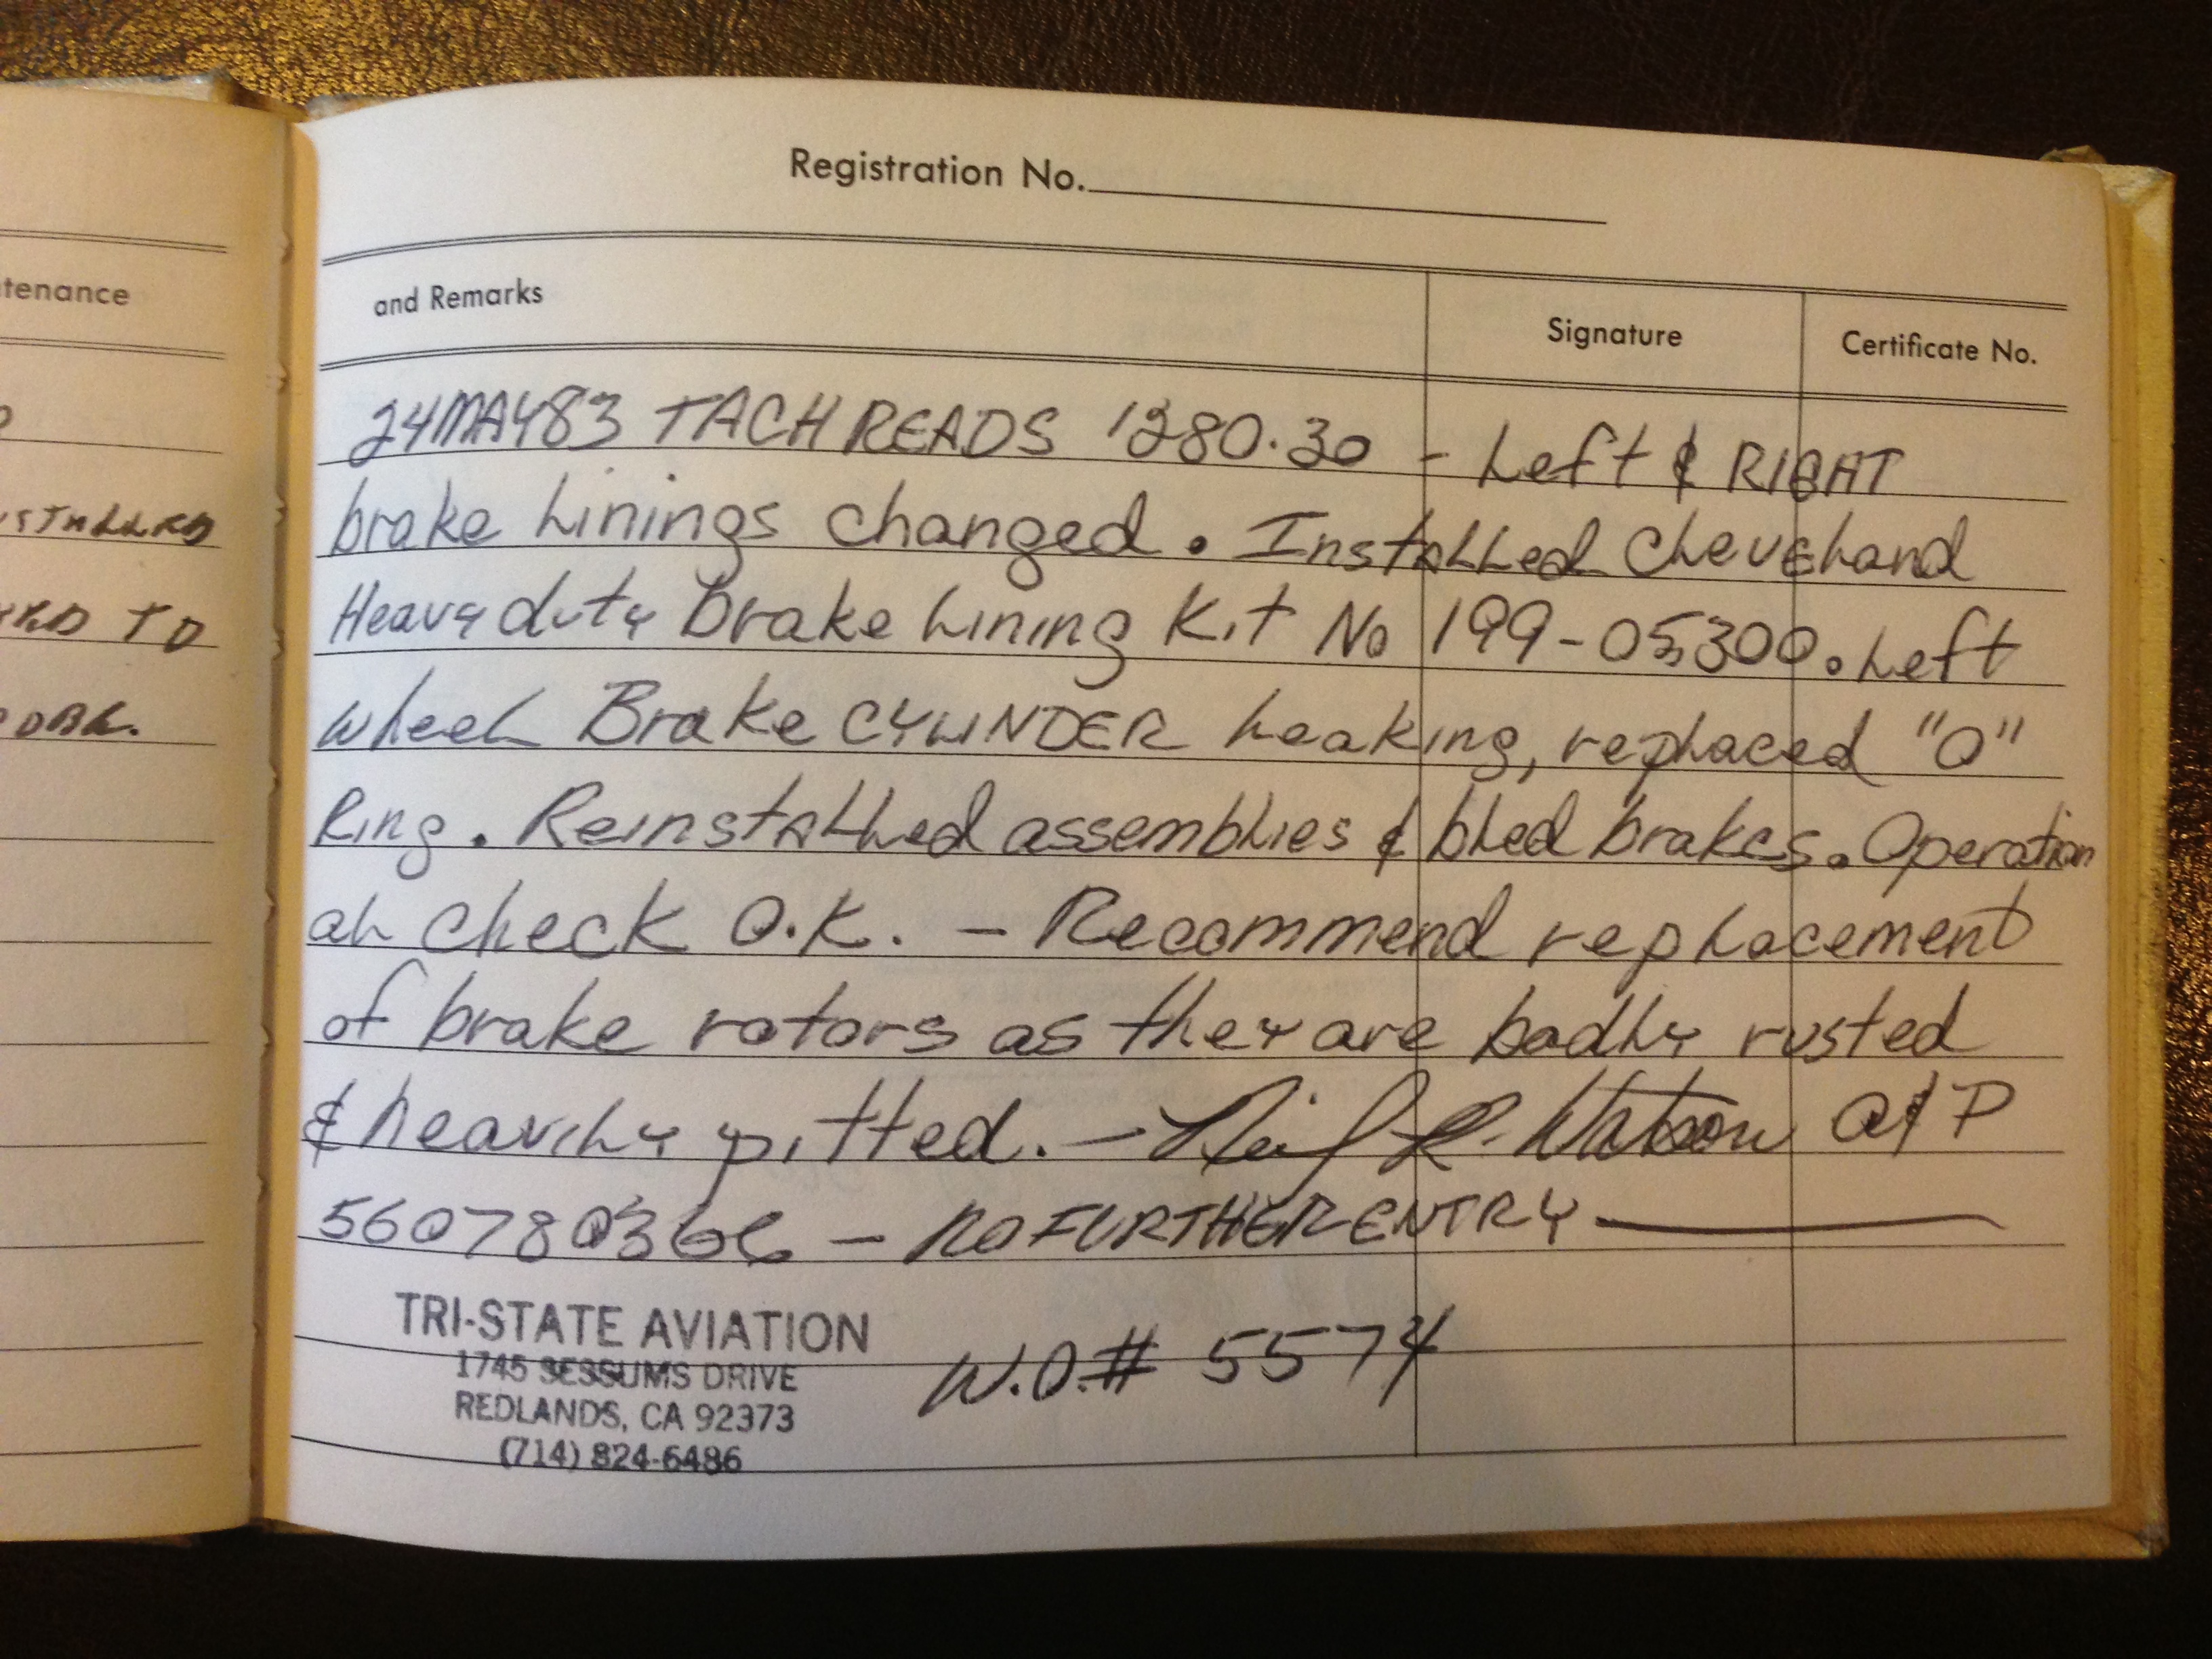 Registration No.
tenance
and Remarks
Signature
Certificate No.
24MAY83 TACH READS 1280.30 - Left & RIGHT
brake Linings changed. Installed Cleveland
Heavy duty Brake Lining Kit No 199-05300. Left
wheel Brake CYLINDER Leaking, replaced "O"
Ring. Reinstalled assemblies & bled brakes. Operation
al check O.K. - Recommend replacement
of brake rotors as they are badly rusted
& heavily pitted. - R. Watson A&P
- NO FURTHER ENTRY
TRI-STATE AVIATION
1745 SESSUMS DRIVE
REDLANDS, CA 92373
(714) 824-6486
W.O.# 5574
TO